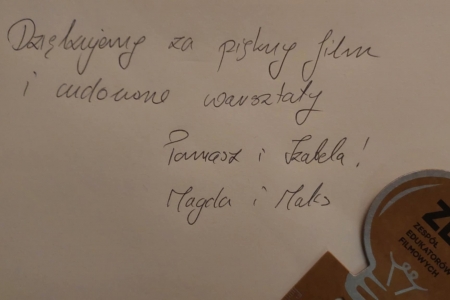 Dziękujemy za piękny film
i cudowne warsztaty
Tomasz i Izabela!
Magda i Maks
ZESPÓŁ
EDUKATORÓW
FILMOWYCH